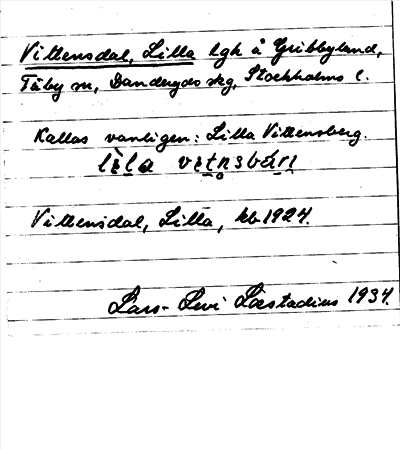 Vittensdal, Lilla lgh å Gribbylund,
Täby sn, Danderyds skg, Stockholms l.
Kallas vanligen: Lilla Vittensberg.
Vittensdal, Lilla, kb 1924.
Lars-Levi Læstadius 1934.